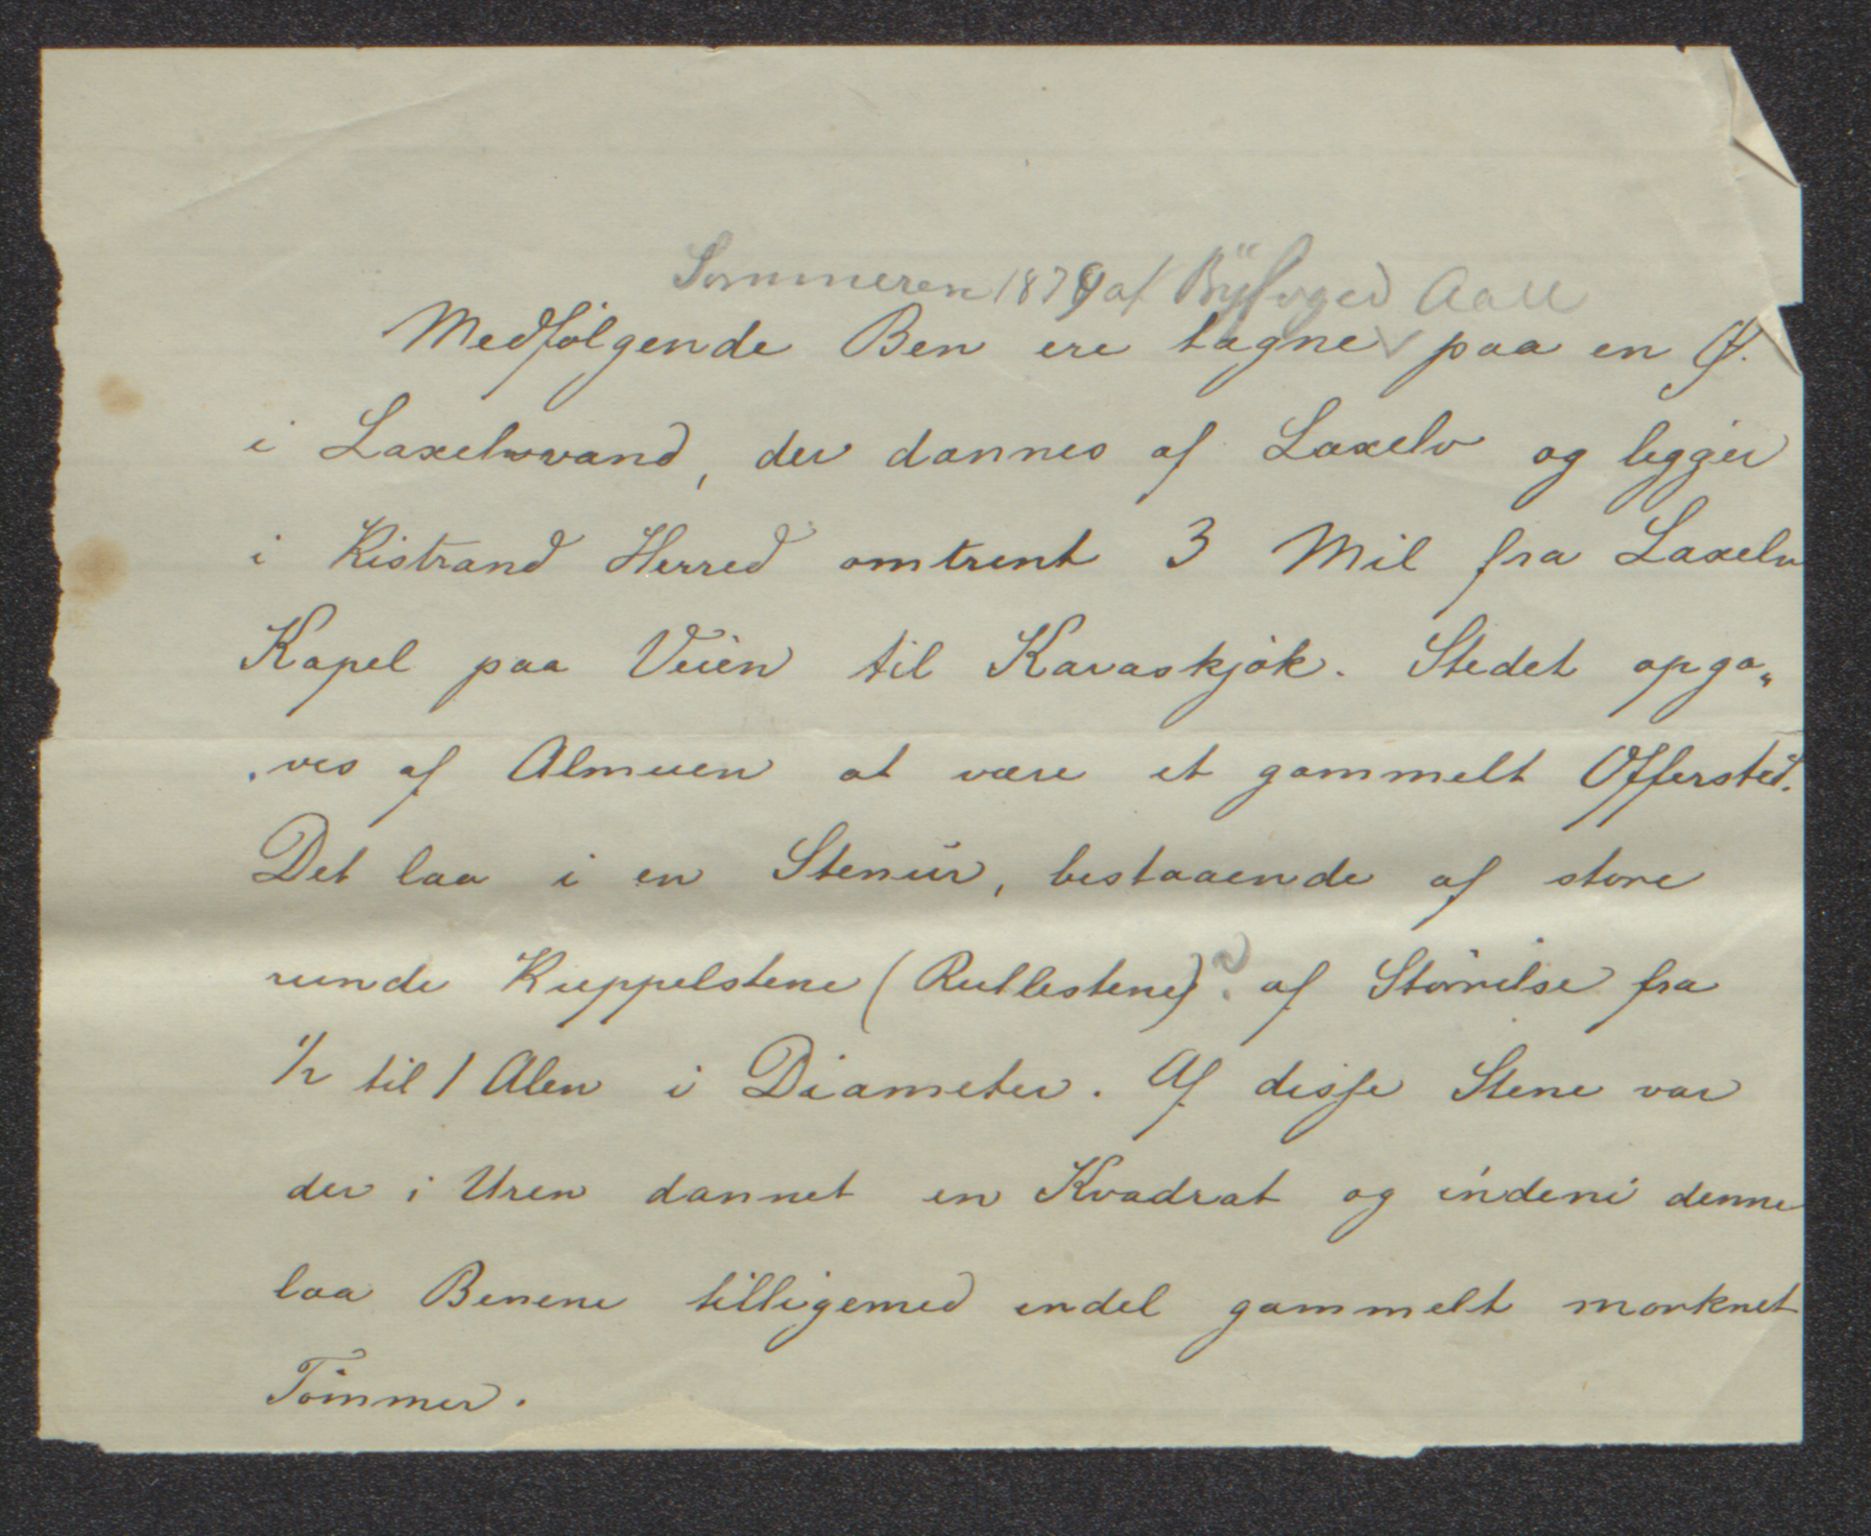 Sommeren 1879 af Byfoged Aall
Medfølgende Ben ere tagne paa en Ø.
i Laxelvvand, der dannes af Laxelv og ligger
i Kistrand Herred omtrent 3 Mil fra Laxelv
Kapel paa Veien til Karaskjok. Stedet opga„
„ves af Almuen at være et gammelt Offersted.
Det laa i en Stenur, bestaaende af store
runde Kuppelstene (Rullestene) af Störrelse fra
1/2 til 1 Alen i Diameter. Af disse Stene var
der i Uren dannet en Kvadrat og indeni denne
laa Benene tilligemed endel gammelt morknet
Tömmer.